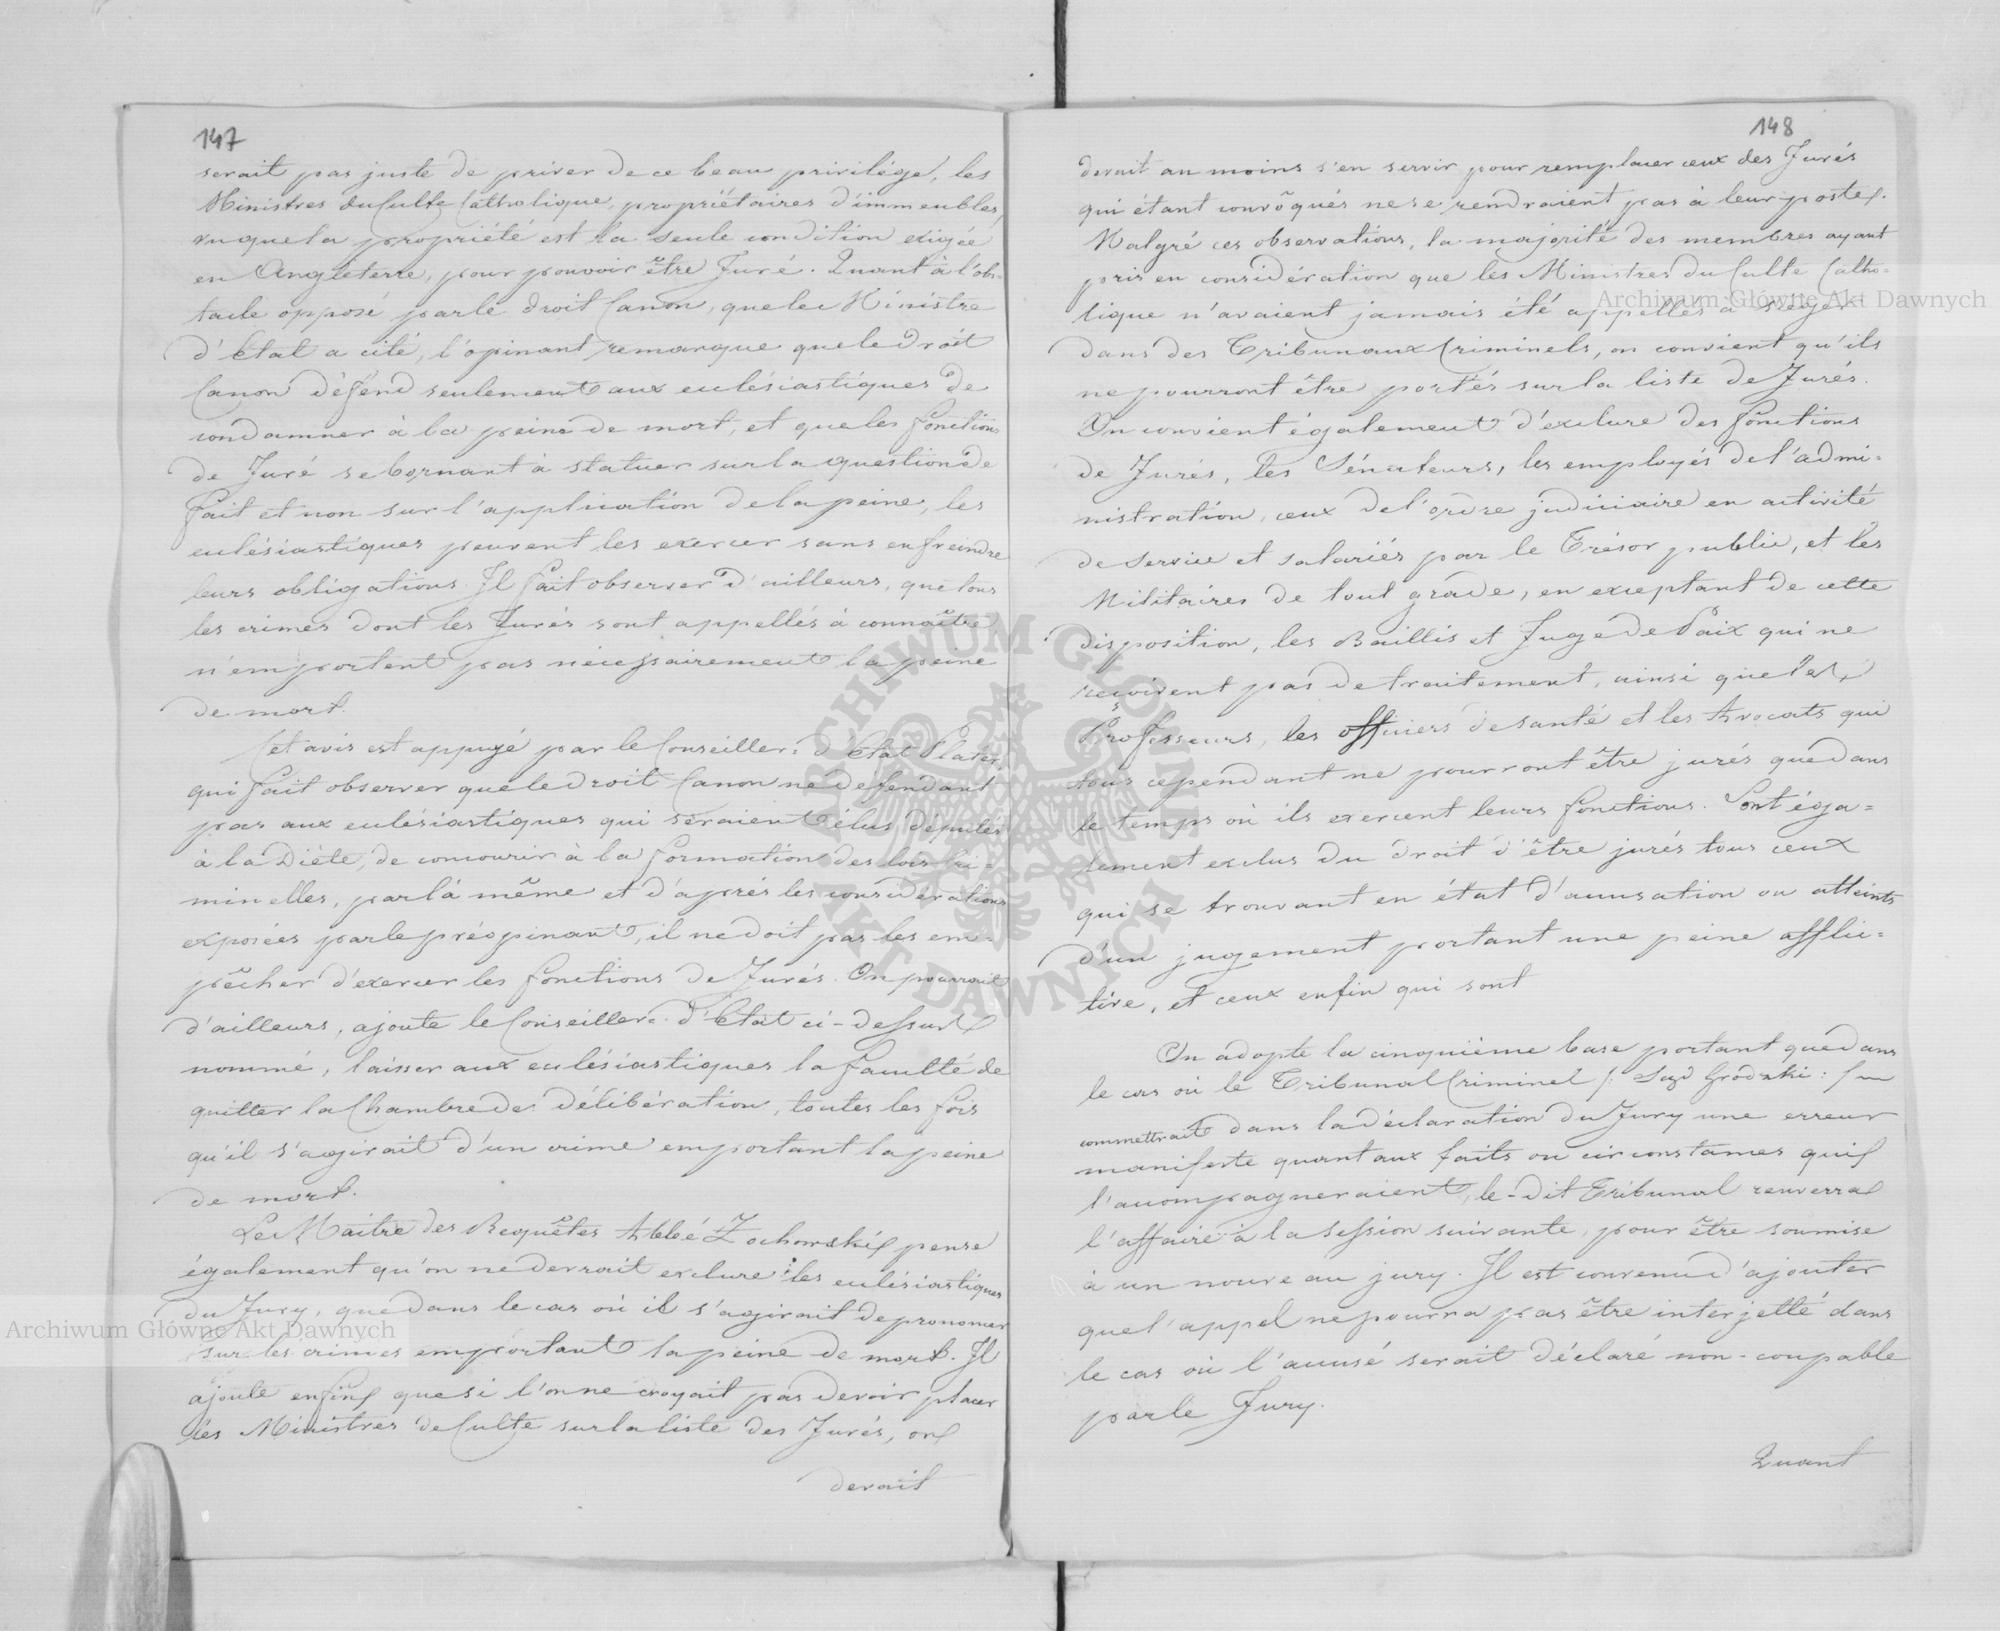 147
serait pas juste de priver de ce beau privilége, les
Ministres du Culte Catholique, propriétaires d'immeubles,
vu que la propriété est la seule condition exigée
en Angleterre, pour pouvoir être Juré. Quant à l'obs-
tacle opposé par le droit Canon, que le Ministre
d'Etat a cité, l'opinant remarque que le droit
Canon défend seulement aux eclésiastiques de
condamner à la peine de mort, et que les fonctions
de Juré se bornant à statuer sur la question de
fait et non sur l'application de la peine, les
eclésiastiques peuvent les exercer sans enfreindre
leurs obligations. Il fait observer d'ailleurs, que tous
les crimes dont les Jurés sont appellés à connaître
n'emportent pas nécessairement la peine
de mort.
Cet avis est appuyé par le Conseiller d'Etat Plater,
qui fait observer que le droit Canon ne defendant
pas aux eclésiastiques qui seraient élus députés
à la Diète, de concourir à la formation des lois cri-
minelles, par là même et d'après les considérations
exposées par le préopinant, il ne doit pas les em-
pêcher d'exercer les fonctions de Jurés. On pourrait
d'ailleurs, ajoute le Conseiller d'Etat ci-dessus
nommé, laisser aux eclésiastiques la faculté de
quitter la Chambre de délibération, toutes les fois
qu'il s'agirait d'un crime emportant la peine
de mort.
Le Maitre des Requêtes Abbé Zochowski pense
également qu'on ne devrait exclure les eclésiastiques
du Jury, que dans le cas où il s'agirait de prononcer
sur les crimes emportant la peine de mort. Il
ajoute enfin que si l'on ne croyait pas devoir placer
les Ministres de Culte sur la liste des Jurés, on
devait
148
devait au moins s'en servir pour remplacer ceux des Jurés
qui étant convoqués ne se rendraient pas à leur poste.
Malgré ces observations, la majorité des membres ayant
pris en considération que les Ministres du Culte Catho-
lique n'avaient jamais été appellés à siéger
dans des Tribunaux Criminels, on convient qu'ils
ne pourront être portés sur la liste de Jurés.
On convient également d'exclure des fonctions
de Jurés, les Sénateurs, les employés de l'admi-
nistration, ceux de l'ordre judiciaire en activité
de service et salariés par le Trésor public, et les
Militaires de tout grade, en exceptant de cette
disposition, les Baillis et Juge de Paix qui ne
reçoivent pas de traitement, ainsi que les
Professeurs, les officiers de santé et les Avocats qui
tous cependant ne pourront être jurés que dans
le temps où ils exercent leurs fonctions. Sont éga-
lement exclus du droit d'être jurés tous ceux
qui se trouvant en état d'accusation ou atteints
d'un jugement portant une peine afflic-
tive, et ceux enfin qui sont
On adopte la cinquième base portant que dans
le cas où le Tribunal Criminel /: Sąd Grodzki :/ on
commettrait dans la déclaration du Jury une erreur
manifeste quant aux faits ou circonstances qui
l'accompagneraient, le-dit Tribunal renverra
l'affaire à la session suivante, pour être soumise
à un nouveau jury. Il est convenu d'ajouter
que l'appel ne pourra pas être interjetté dans
le cas où l'accusé serait déclaré non-coupable
par le Jury.
Quant
Archiwum Główne Akt Dawnych
Archiwum Główne Akt Dawnych
ARCHIWUM GŁÓWNE AKT DAWNYCH